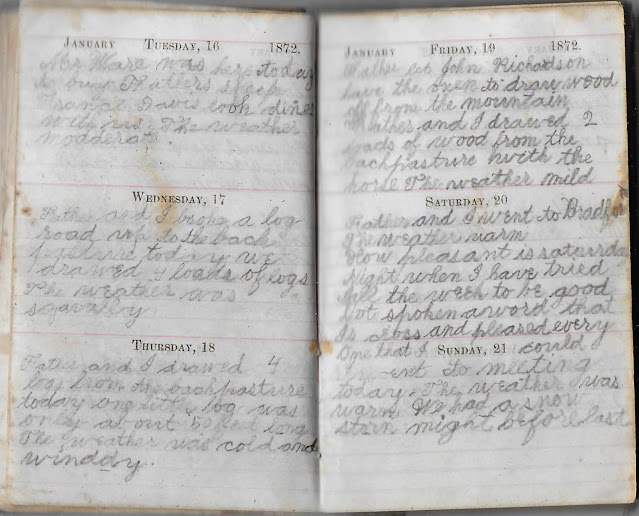 JANUARY TUESDAY, 16 1872.
Mr Ware was here today
to buy Fathers stock
Davis took diner
with us. The weather
modderat.
WEDNESDAY, 17
Father and I broke a log
road up to the back
pasture today we
drawed 4 loads of logs
The weather was
squarly
THURSDAY, 18
Father and I drawed 4
logs from the backpasture
today one little log was
only about 50 feet long
The weather was cold and
winddy.
JANUARY FRIDAY, 19 1872.
Father let John Richardson
have the oxen to draw wood
off from the mountain
Father and I drawed 2
loads of wood from the
backpasture with the
horse The weather mild
SATURDAY, 20
Father and I went to Bradford
The weather warm
How pleasant is saturday
Night when I have tried
all the week to be good
Not spoken a word that
Is cross and pleased every
One that I could
SUNDAY, 21
I went to meeting
today. The weather was
warm. We had a snow
storm night before last